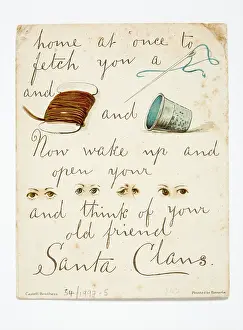 home at once to
fetch you a
and
and
Now wake up and
open your
and think of your
old friend
Santa Claus.
34/1997.5